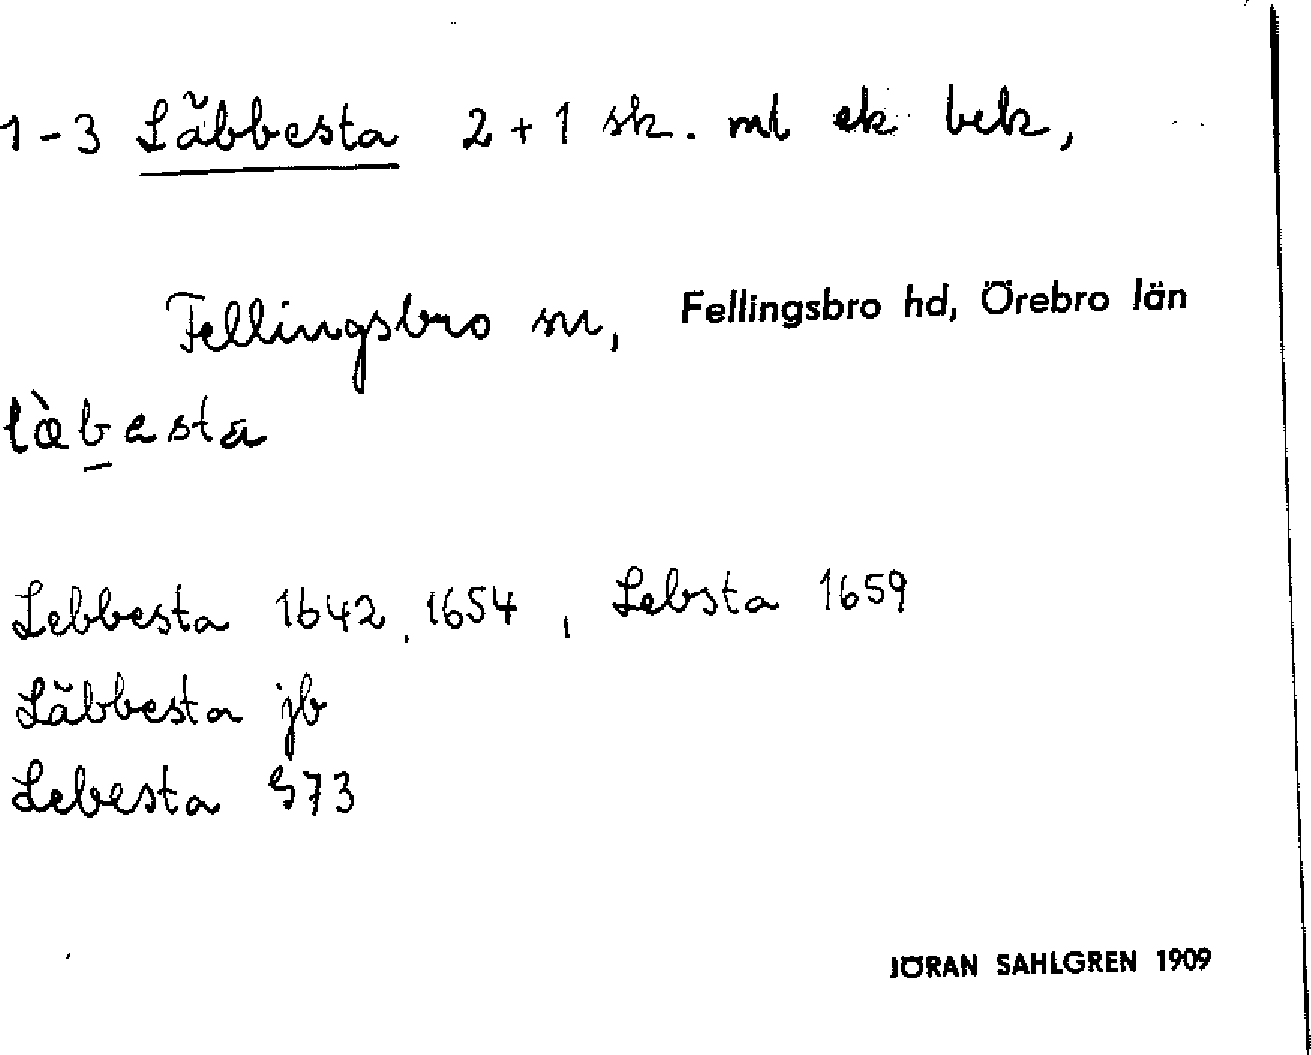 1-3 Läbbesta 2+1 sk. ml ek bek,
Fellingsbro sn, Fellingsbro hd, Örebro län
læ̀besta
Lebbesta 1642, 1654, Lebsta 1659
Läbbesta jb
Lebesta S73
JÖRAN SAHLGREN 1909